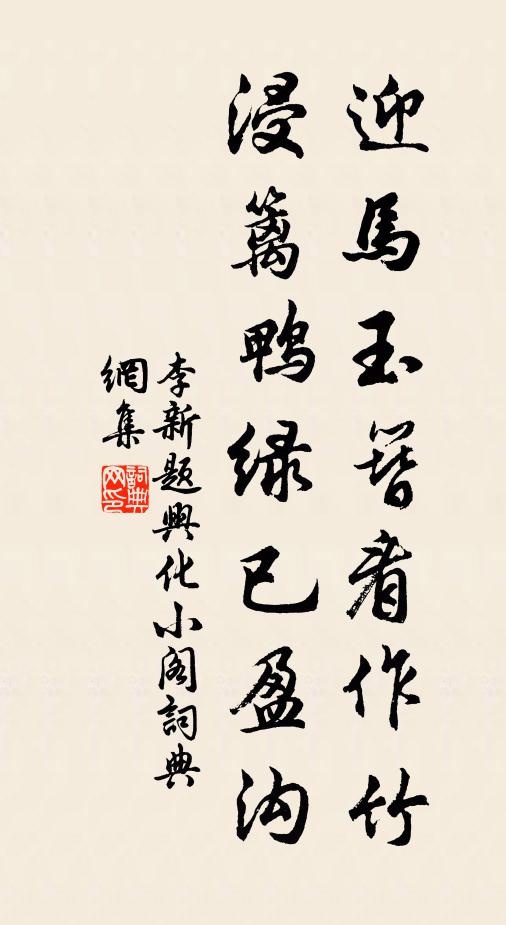 迎馬玉簪看作竹
浸籬鴨绿已盈沟
李新题興化小阁詞典
網集
詞典
网印